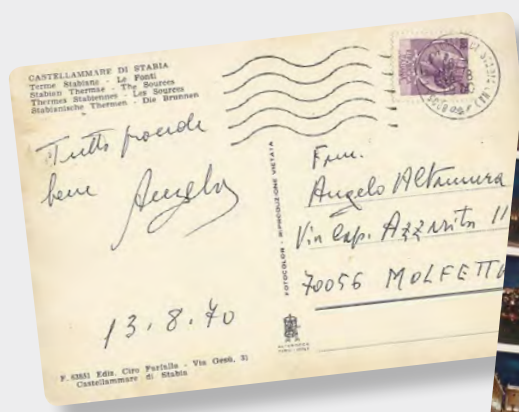 CASTELLAMMARE DI STABIA
Terme Stabiane - Le Fonti
Stabian Thermae - The Sources
Thermes Stabiennes - Les Sources
Stabianische Thermen - Die Brunnen
Tutto procede
bene Angelo
13.8.70
F. 63851 Ediz. Ciro Farfalla - Via Gesù, 31
Castellammare di Stabia
FOTOCOLOR - RIPRODUZIONE VIETATA
Fam.
Angelo Altamura
Via Cap. Azzarita 11
70056 MOLFETTA